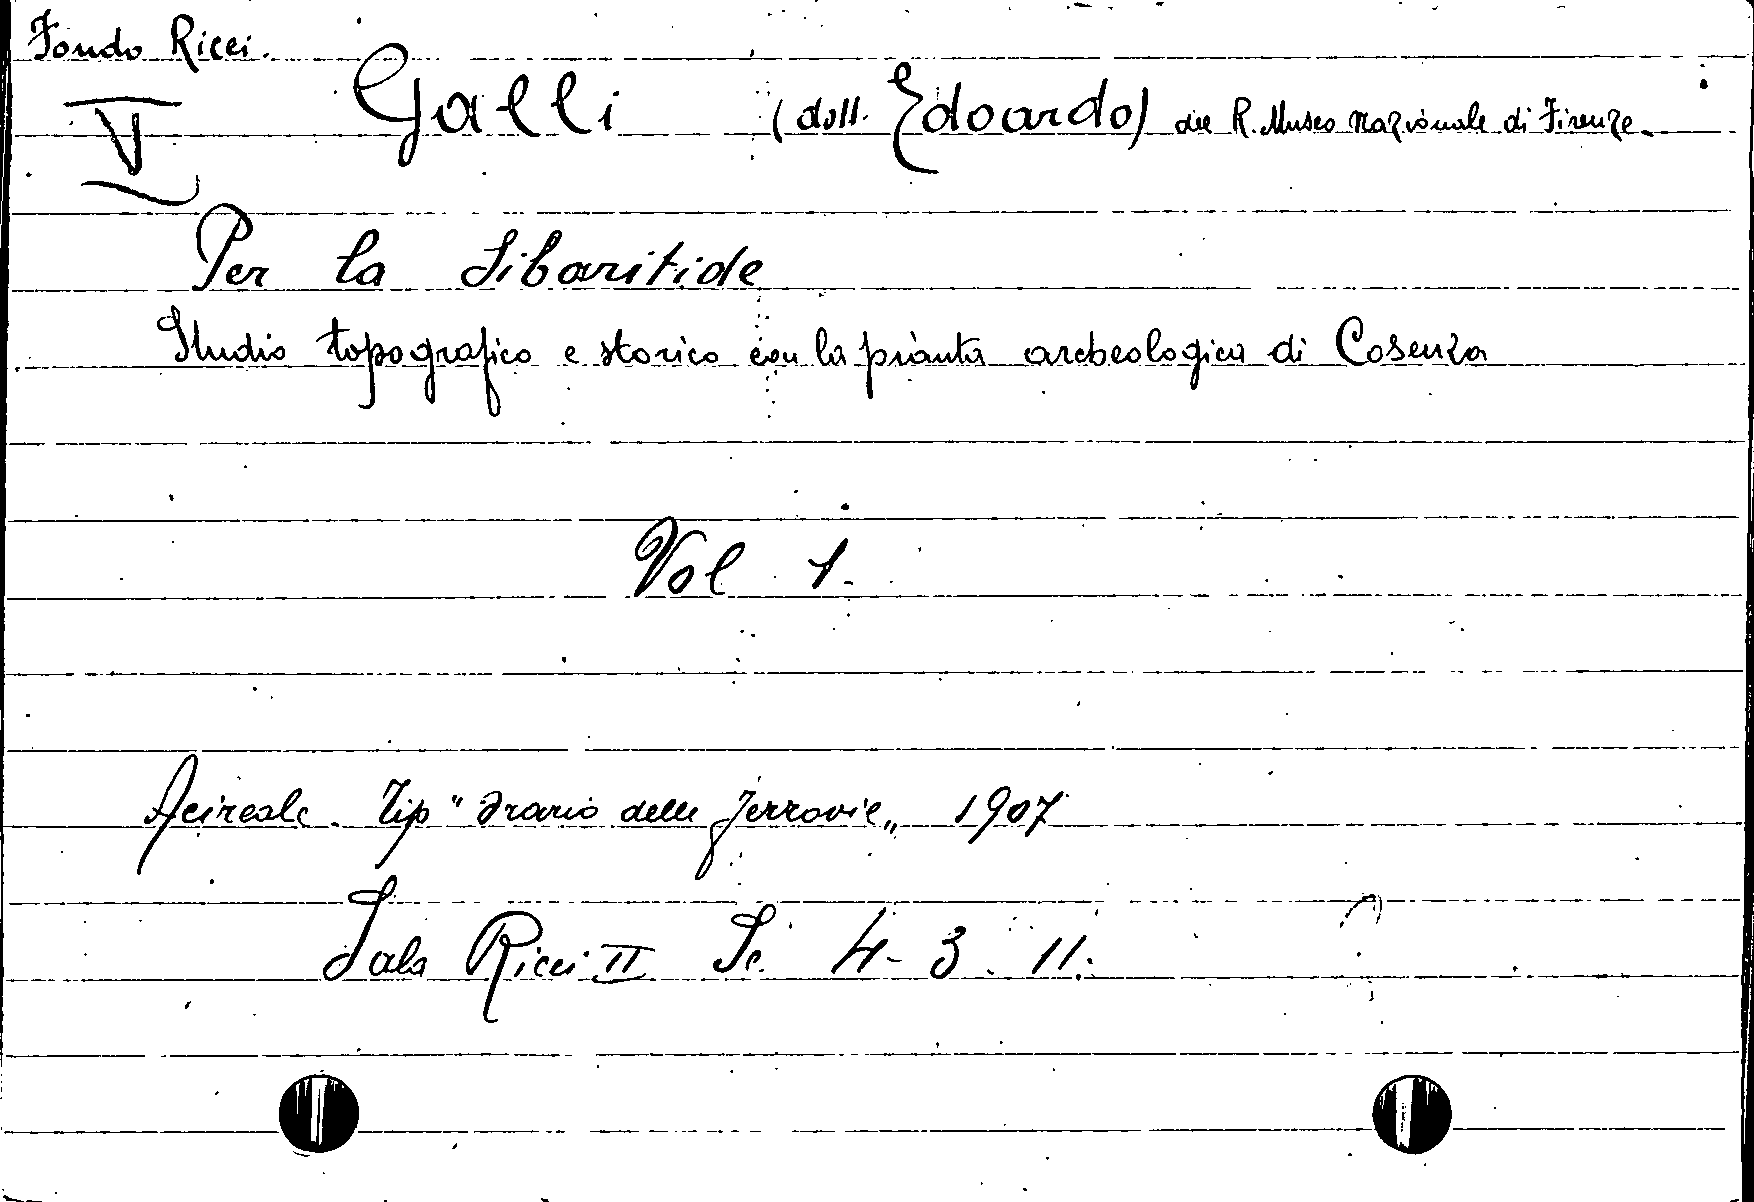 Fondo Ricci.
V
Galli (dott. Edoardo) del R. Museo Nazionale di Firenze.
Per la Sibaritide
Studio topografico e storico con la pianta archeologica di Cosenza
Vol 1.
Acireale. Tip "Orario delle Ferrovie„ 1907
Sala Ricci II Sc. 4-3.11.